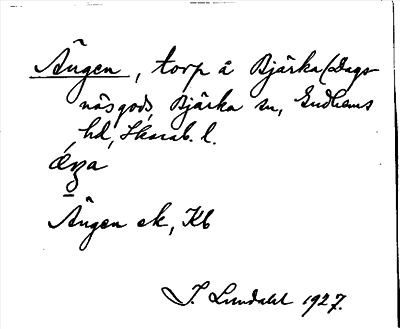 Ängen, torp å Bjärka (Dags-
näsgods, Bjärka sn, Gudhems
hd, Skarab. l.
Ängen ek, Kb
J. Lundahl 1927.